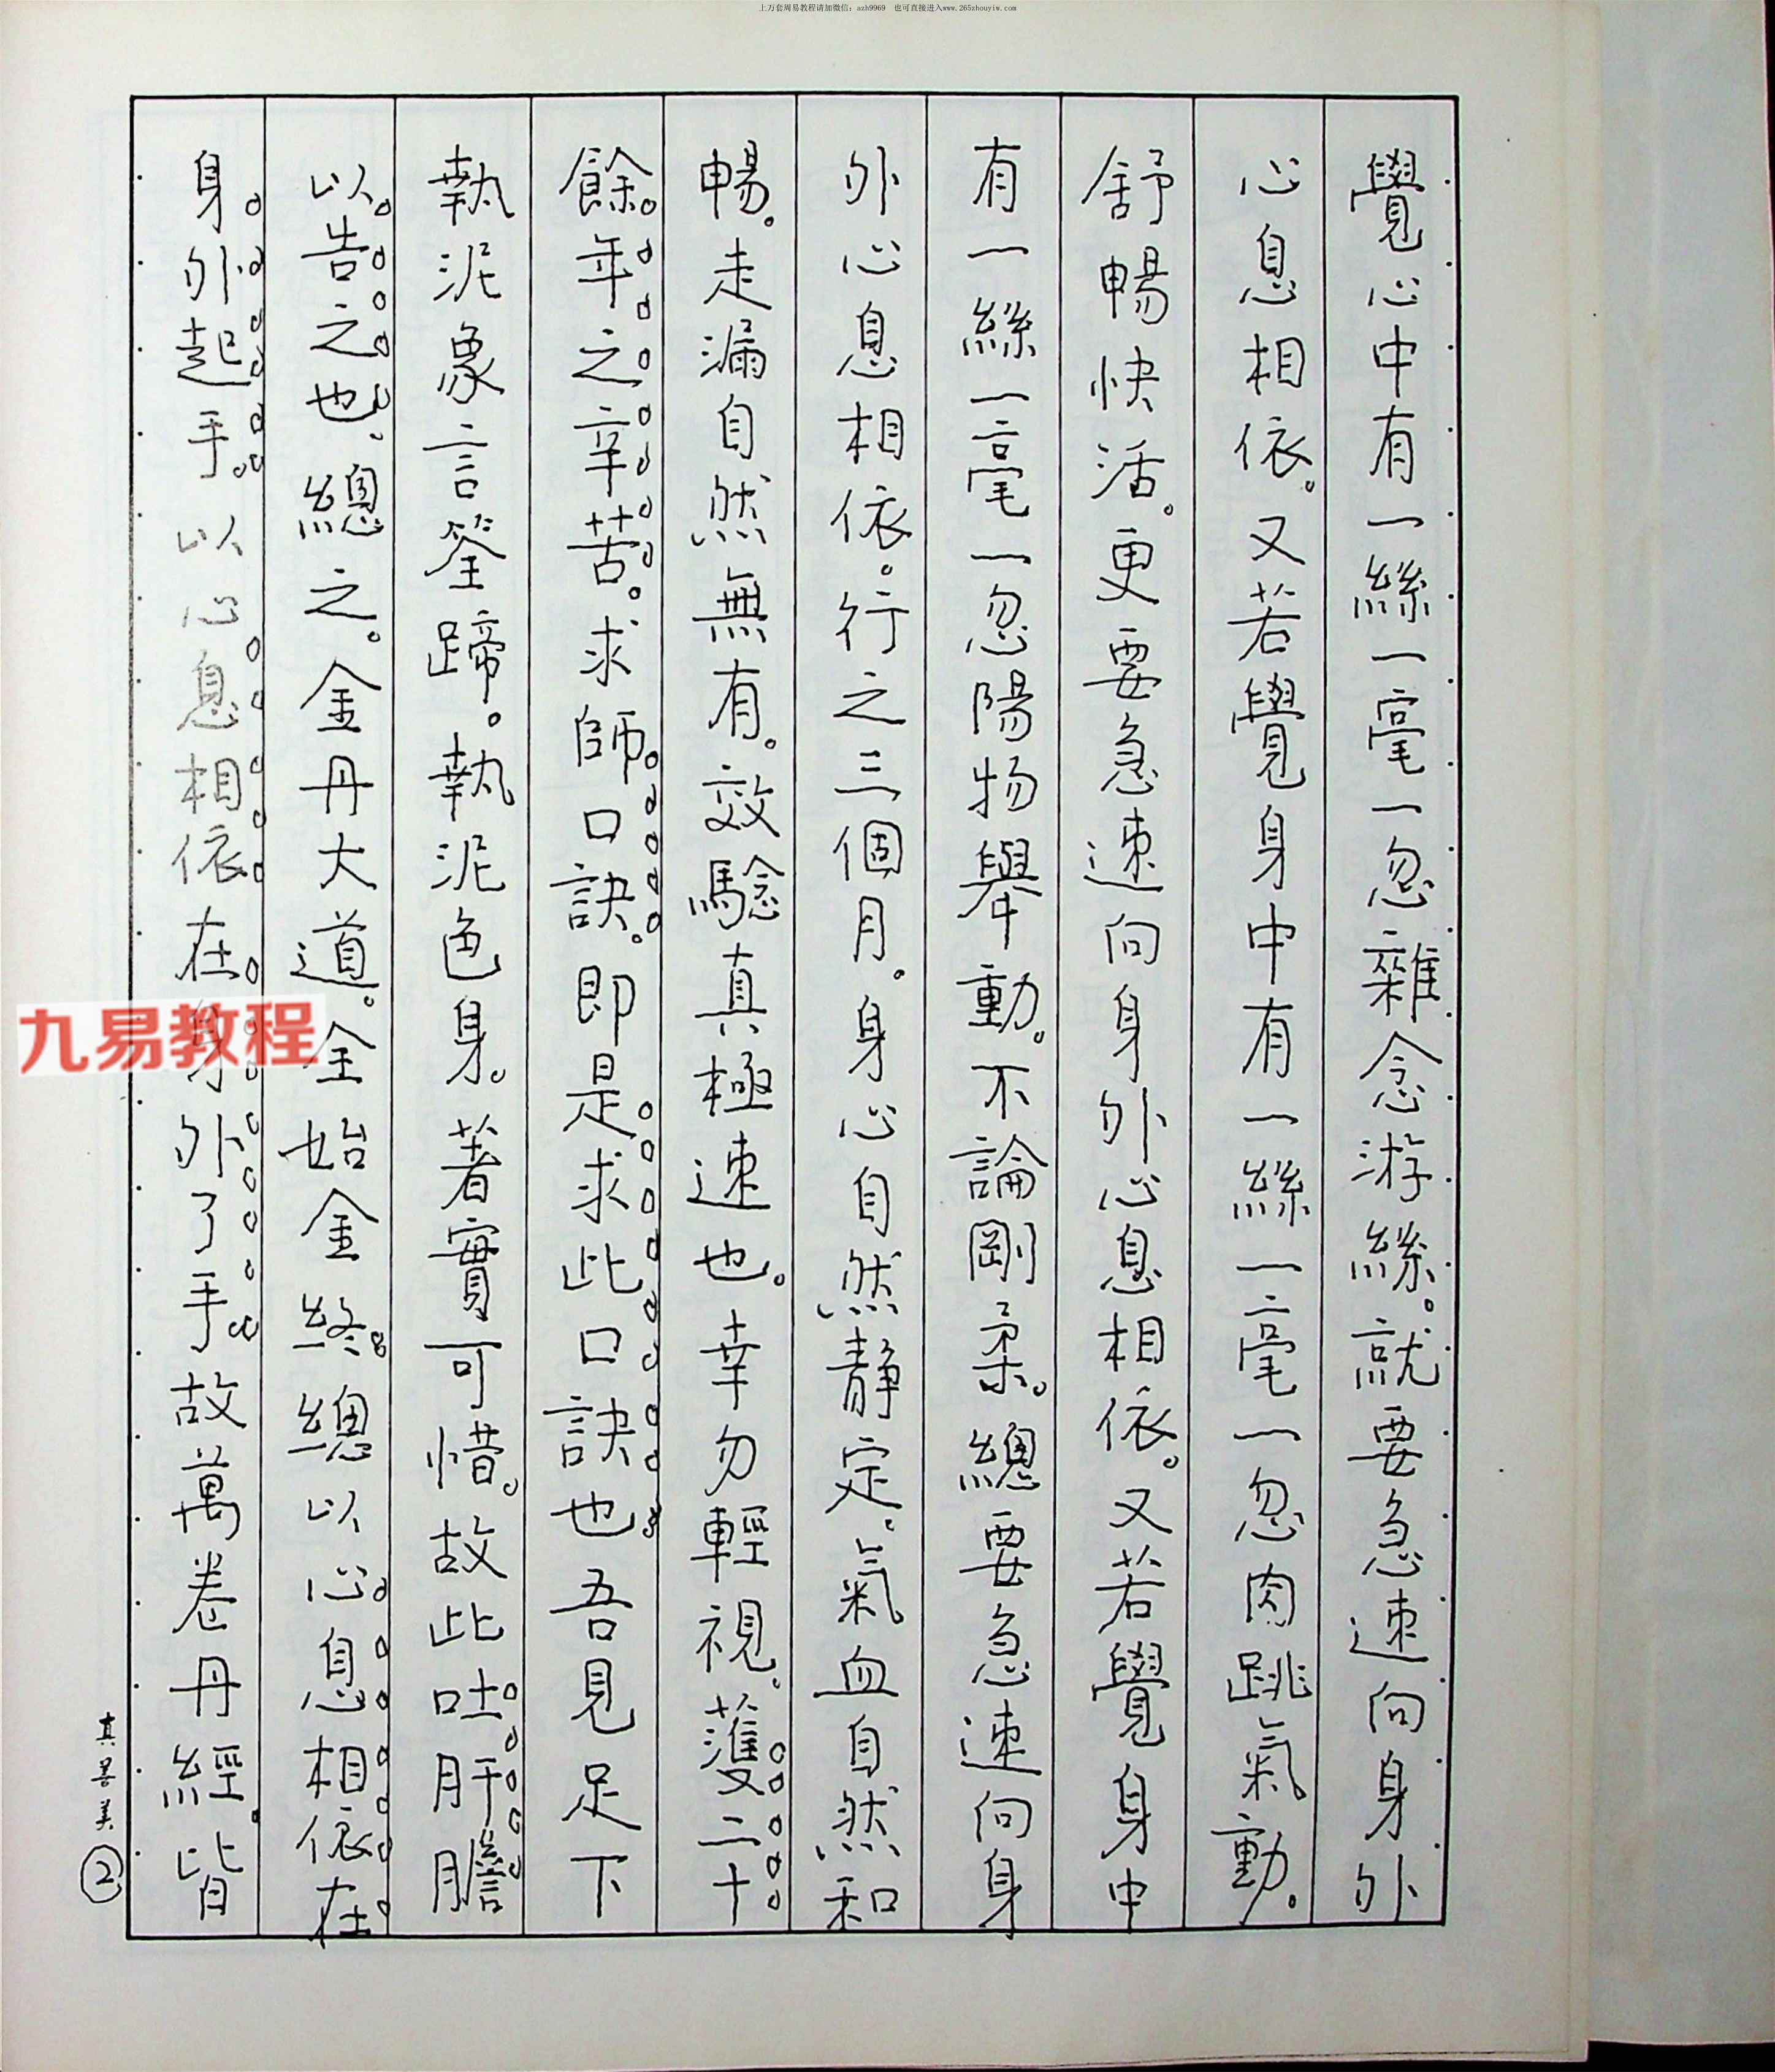 上万套周易教程请加微信：azh9969 也可直接进入www.265zhouyiw.com
覺心中有一絲一毫一忽雜念游絲。就要急速向身外
心息相依。又若覺身中有一絲一毫一忽肉跳氣動。
舒暢快活。更要急速向身外心息相依。又若覺身中
有一絲一毫一忽陽物舉動。不論剛柔。總要急速向身
外心息相依。行之三個月。身心自然靜定。氣血自然和
暢。走漏自然無有。效驗真極速也。幸勿輕視。獲二十
餘年之辛苦。求師口訣。即是求此口訣也吾見足下
執泥象言筌蹄。執泥色身。著實可惜。故此吐肝膽
以告之也。總之。金丹大道。全始全終。總以心息相依在
身外起手。以心息相依在身外了手。故萬卷丹經。皆
九易教程
真善美
②